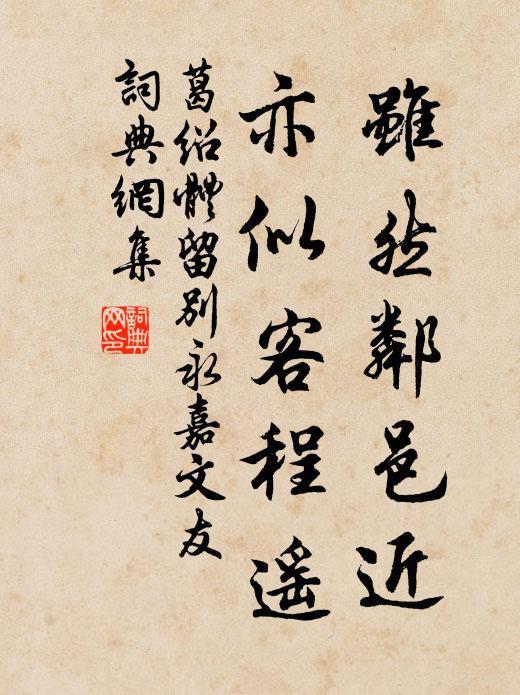 雖然鄰邑近
亦似客程遥
葛绍體留别永嘉文友
詞典網集
詞典網印